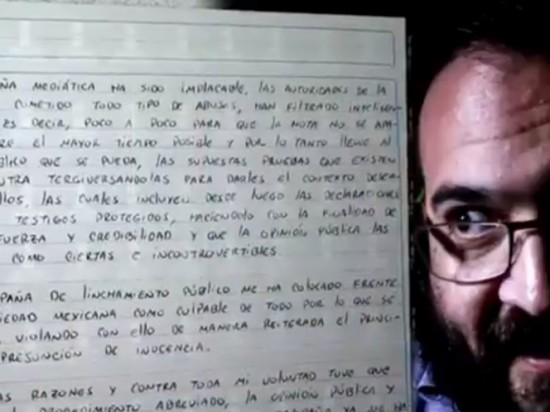 ÑA MEDIÁTICA HA SIDO IMPLACABLE, LAS AUTORIDADES DE LA
COMETIDO TODO TIPO DE ABUSOS, HAN FILTRADO
ES DECIR, POCO A POCO PARA QUE LA NOTA NO SE APA-
RE EL MAYOR TIEMPO POSIBLE Y POR LO TANTO LLEGUE AL
BLICO QUE SE PUEDA, LAS SUPUESTAS PRUEBAS QUE EXISTEN
NTRA TERGIVERSANDOLAS PARA DARLES EL CONTEXTO DESEA-
LLOS, LAS CUALES INCLUYEN DESDE LUEGO LAS DECLARACIONES
TESTIGOS PROTEGIDOS, HACIENDOLO CON LA FINALIDAD DE
FUERZA Y CREDIBILIDAD Y QUE LA OPINIÓN PÚBLICA LAS
COMO CIERTAS E INCONTROVERTIBLES.
PAÑA DE LINCHAMIENTO PÚBLICO ME HA COLOCADO FRENTE
IEDAD MEXICANA COMO CULPABLE DE TODO POR LO QUE SE
VIOLANDO CON ELLO DE MANERA REITERADA EL PRINCI-
PRESUNCIÓN DE INOCENCIA.
AS RAZONES Y CONTRA TODA MI VOLUNTAD TUVE QUE
PROCEDIMIENTO ABREVIADO, LA OPINIÓN PÚBLICA Y
YA QUE HA